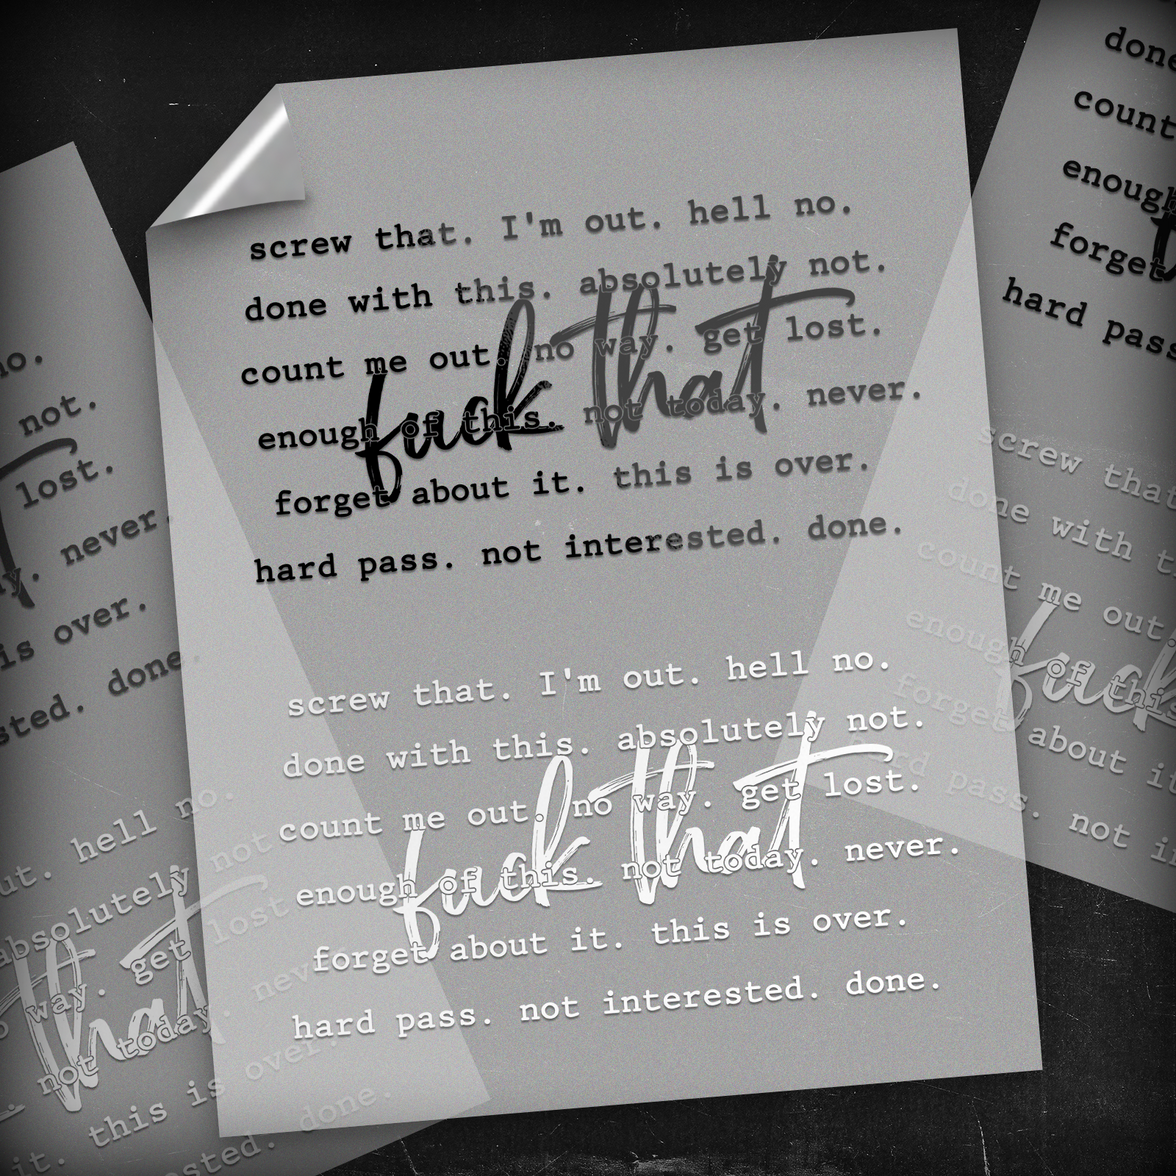 screw that. I'm out. hell no.
done with this. absolutely not.
count me out. no way. get lost.
fuck that
enough of this. not today. never.
forget about it. this is over.
hard pass. not interested. done.
screw that. I'm out. hell no.
done with this. absolutely not.
count me out. no way. get lost.
fuck that
enough of this. not today. never.
forget about it. this is over.
hard pass. not interested. done.
no.
not.
lost.
never.
is over.
done.
hell no.
absolutely not
way. get lost
that
not today. never
it. this is over.
done.
done
count
enough
forget
hard pass
screw that
done with
count me out.
enough of this
fuck
forget about it
hard pass. not